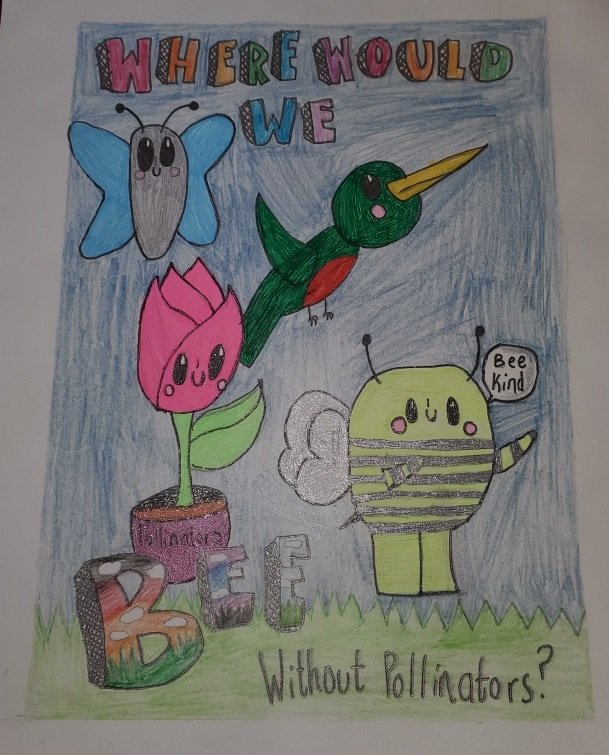 WHERE WOULD
WE
Bee
Kind
Pollinators
BEE
Without Pollinators?